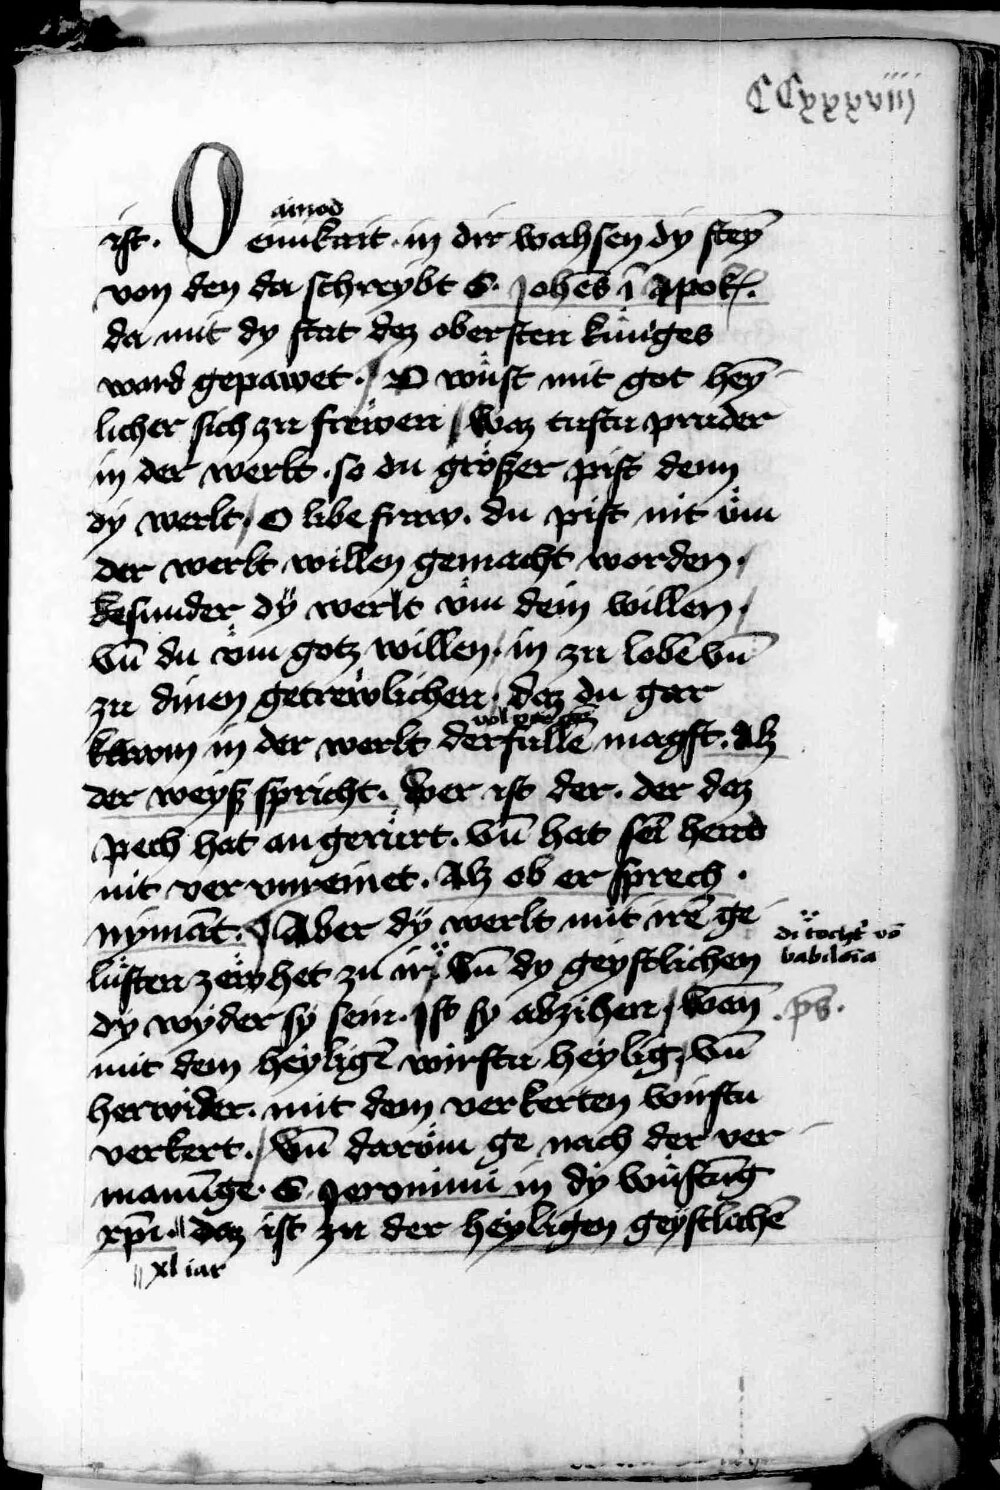 CCxxxviiij
ainod
ist. O einikait. in dir wahsen dy steȳ
von den da schreybt S. Johēs ī Apok.
da mit dy stat dez obersten küniges
ward gepawet. / O wüst mit got heȳ
licher sich zu frewen / waz tustu pruder
in der werlt. so du größer pist denn
dy werlt / O libe fraw. du pist nit vm̈
der werlt willen gemacht worden. /
besunder dÿ werlt vm̈ dein willen /
vn̄ du vm̈ gotz willen. in zu lobē vn̄
zu dinen getrewlichen. daz du gar
kawm in der werlt derfullē magst. Alz
der weyß spricht. Wer ist der. der daz
pech hat an gerürt. vn̄ hat sei hend
nit ver vnreinet. Alz ob er sprech.
nymāt. Aber dÿ werlt mit irē ge
lüsten zewhet zu ir / vn̄ dy geystlichen
di tocht vō
babilōia
dy wyder sy sein. Ist sy abzihen / wan̄
ps̄.
mit dem heyligē wirstu heylig, vn̄
herwider. mit dem verkerten wirstu
verkert. / vn̄ darvm̈ ge nach der ver
manūge. S. Jeronimi in dy wüstūg
xp̄i. // daz ist zu der heyligen geystlichē
// xl iar